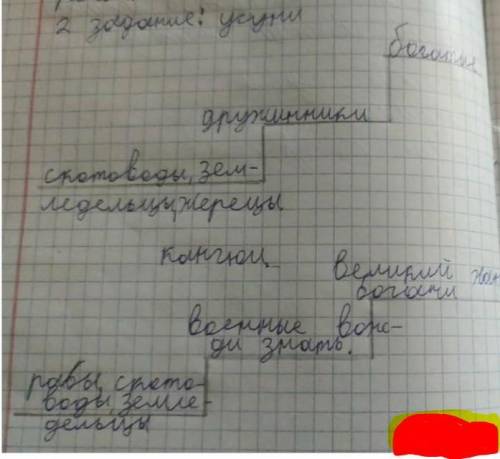 2 задание: усуни
богатые
дружинники
скотоводы, зем-
ледельцы, жерецы
кангюи
великий хан
богачи
военные вож-
ди знать.
рабы, ското-
воды, земле-
дельцы